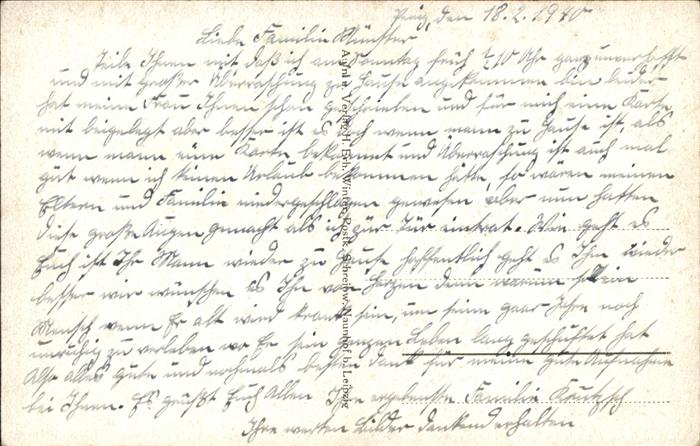 Penig, den 18.2.1940
Liebe Familie Münster
Teile Ihnen mit daß ich am Sonntag früh 7.10 Uhr ganz unverhofft
und mit großer Überraschung zu Hause angekommen bin leider
hat meine Frau Ihnen schon geschrieben und für mich eine Karte
mit beigelegt aber besser ist es doch wenn mann zu Hause ist, als
wenn mann eine Karte bekommt und Überraschung ist auch mal
gut wenn ich keinen Urlaub bekommen hätte, so wären meinen
Eltern und Familie niedergeschlagen gewesen aber nun hatten
diese große Augen gemacht als ich zur Tür eintrat. Wie geht es
Euch ist Ihr Mann wieder zu Hause hoffentlich geht es Ihn wieder
besser wir wünschen es Ihn von Herzen denn warum soll ein
Mensch wenn Er alt wird krank sein, um seine paar Jahre noch
unruhig zu verleben wo Er sein ganzen Leben lang geschuftet hat
Also alles gute und nochmals besten Dank für meine gute Aufnahme
bei Ihnen. Es grüßt Euch Allen Ihre ergebenste Familie
Ihre werten Bilder dankend erhalten
Aufn. u. Verlag H. Erh. Winter, Postk. Schreibw. Naunhof b. Leipzig